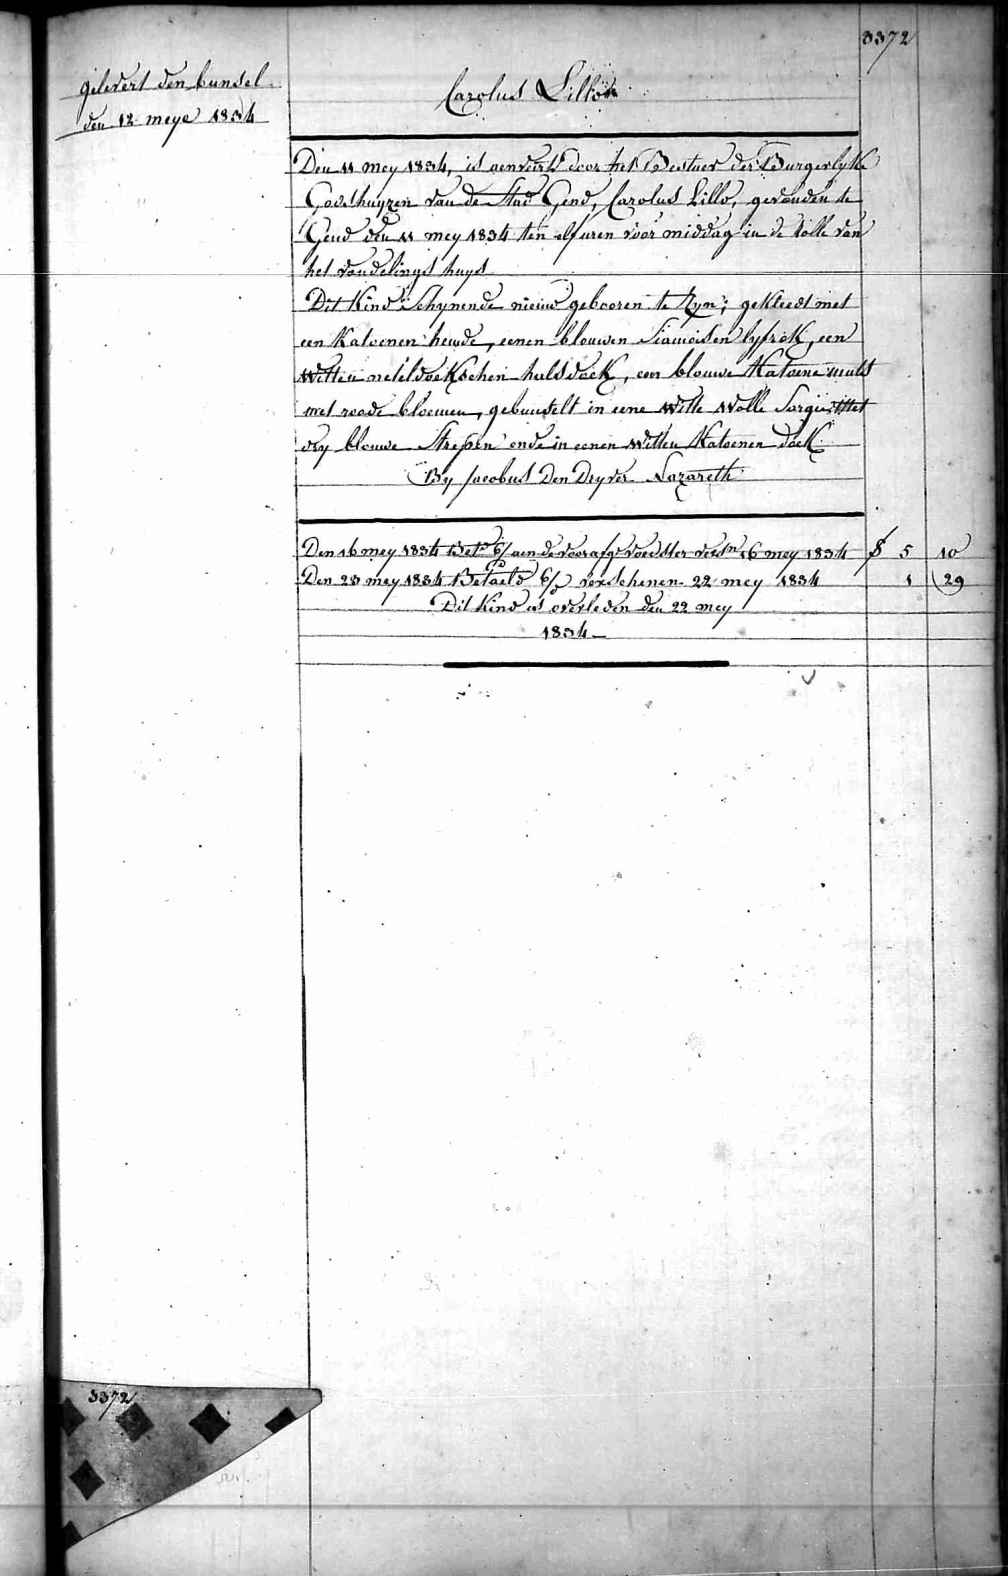 3372
gelevert den bunsel
den 12 meye 1834
Carolus Lillo
Den 11 mey 1834, is aenveird door het Bestuer der Burgerlyke
Godshuyzen van de Stad Gend, Carolus Lillo, gevonden te
Gend den 11 mey 1834 ten elf uren voor middag in de rolle van
het vondelings huys
Dit Kind schynende nieuw gebooren te Zyn; gekleedt met
een Katoenen hemde, eenen blouwen Siamoisen lyfrok, een
Witten neteldoekschen halsdoek, een blouwe Katoene muts
met roode bloemen, gebunselt in eene Witte Wolle Sargie Met
dry blouwe Strepen ende in eenen Witten Katoenen doek
By Jacobus Den Dryver Lazareth
Den 16 mey 1834 Bet.d 6/ aen de voorafge voedster versn 16 mey 1834 5 10
Den 23 mey 1834 Betaeld 6/ verschenen 22 mey 1834 1 29
Dit Kind is overleden den 22 mey
1834
3372